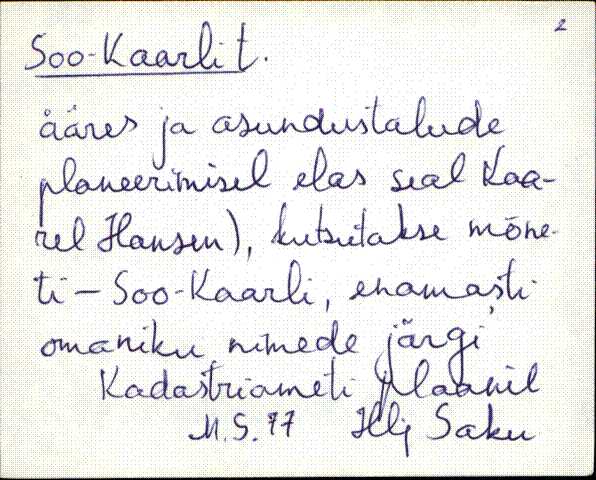 2
Soo-Kaarlit.
ääres ja asundustalude
planeerimisel elas seal Kaa-
rel Hansen), kutsutakse mõne-
ti – Soo-Kaarli, enamasti
omaniku nimede järgi
Kadastriameti plaanil
M.S. 77 Hlj Saku